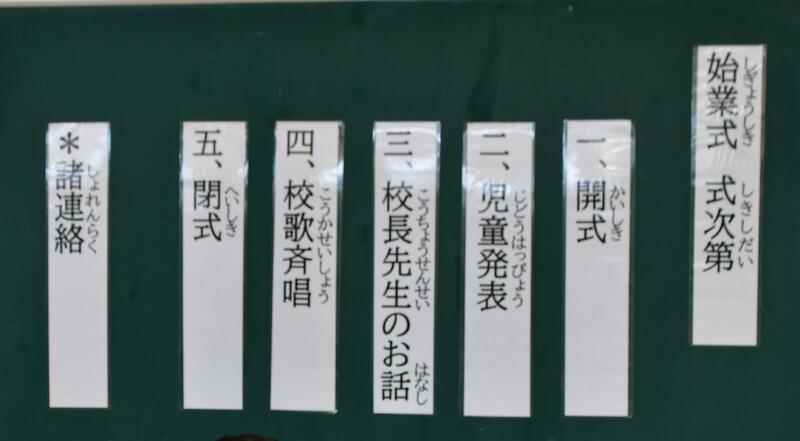 始業式　式次第
しぎょうしき　しきしだい
一、開式
かいしき
二、児童発表
じどうはっぴょう
三、校長先生のお話
こうちょうせんせい　はなし
四、校歌斉唱
こうかせいしょう
五、閉式
へいしき
＊諸連絡
しょれんらく